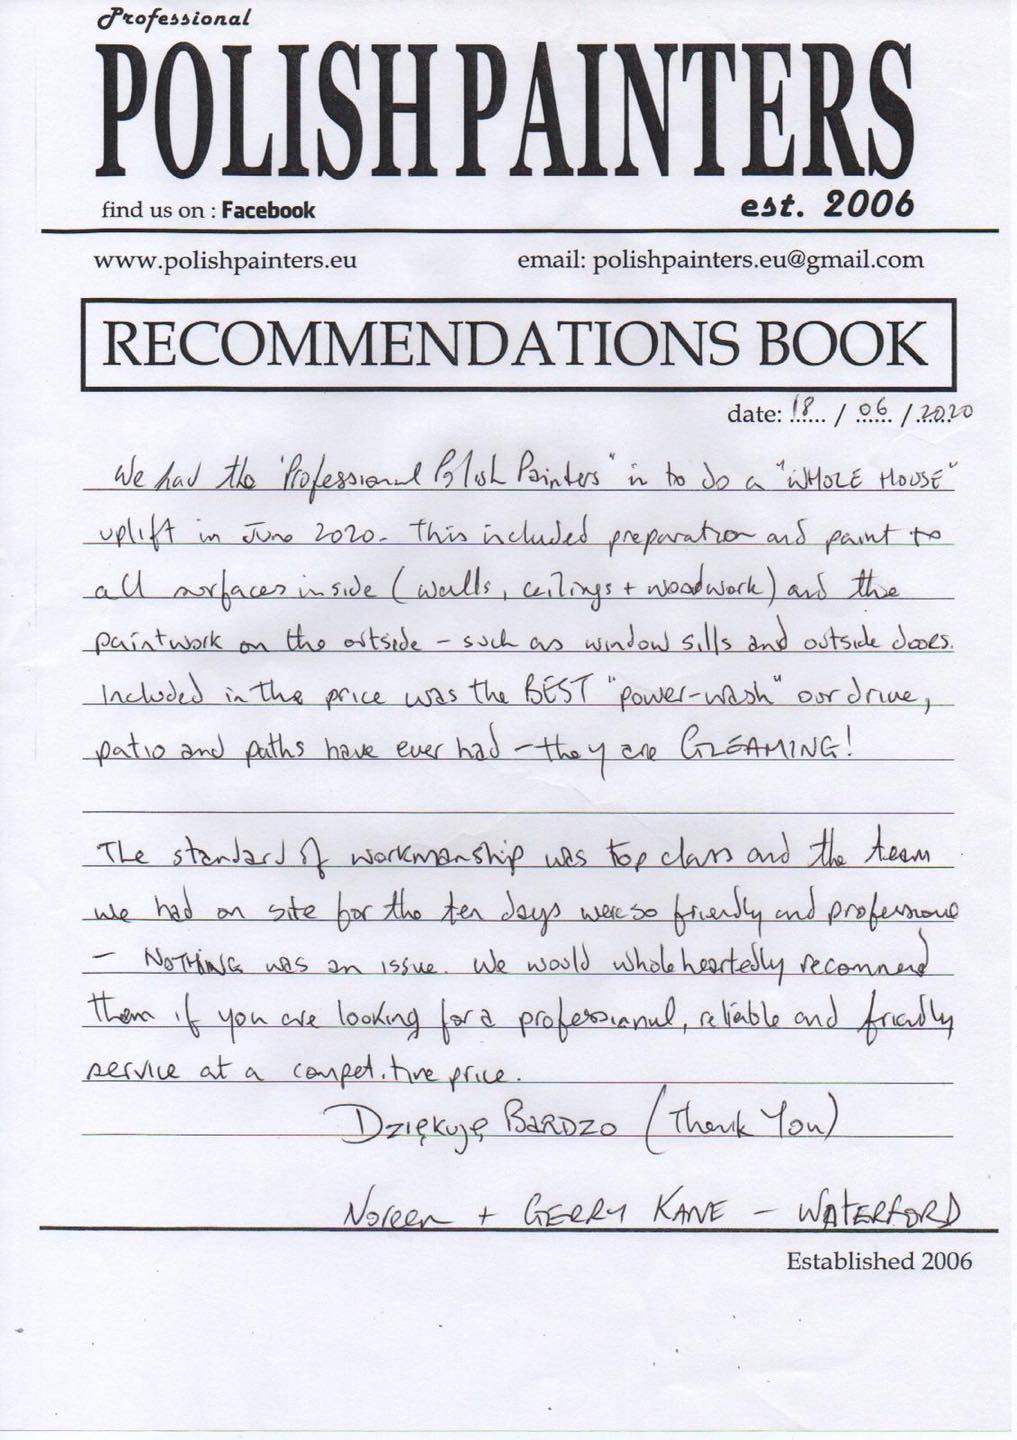 Professional
POLISH PAINTERS
find us on : Facebook
est. 2006
www.polishpainters.eu
email: polishpainters.eu@gmail.com
RECOMMENDATIONS BOOK
date: 18 / 06 / 2020
We had the "Professional Polish Painters" in to do a "WHOLE HOUSE"
uplift in June 2020. This included preparation and paint to
all surfaces inside (walls, ceilings + woodwork) and the
paintwork on the outside - such as window sills and outside doors.
Included in the price was the BEST "power-wash" our drive,
patio and paths have ever had - they are GLEAMING!
The standard of workmanship was top class and the team
we had on site for the ten days were so friendly and professional
- NOTHING was an issue. We would wholeheartedly recommend
them if you are looking for a professional, reliable and friendly
service at a competitive price.
Dziękuję BARDZO (Thank You)
Noreen + GERRY KANE - WATERFORD
Established 2006